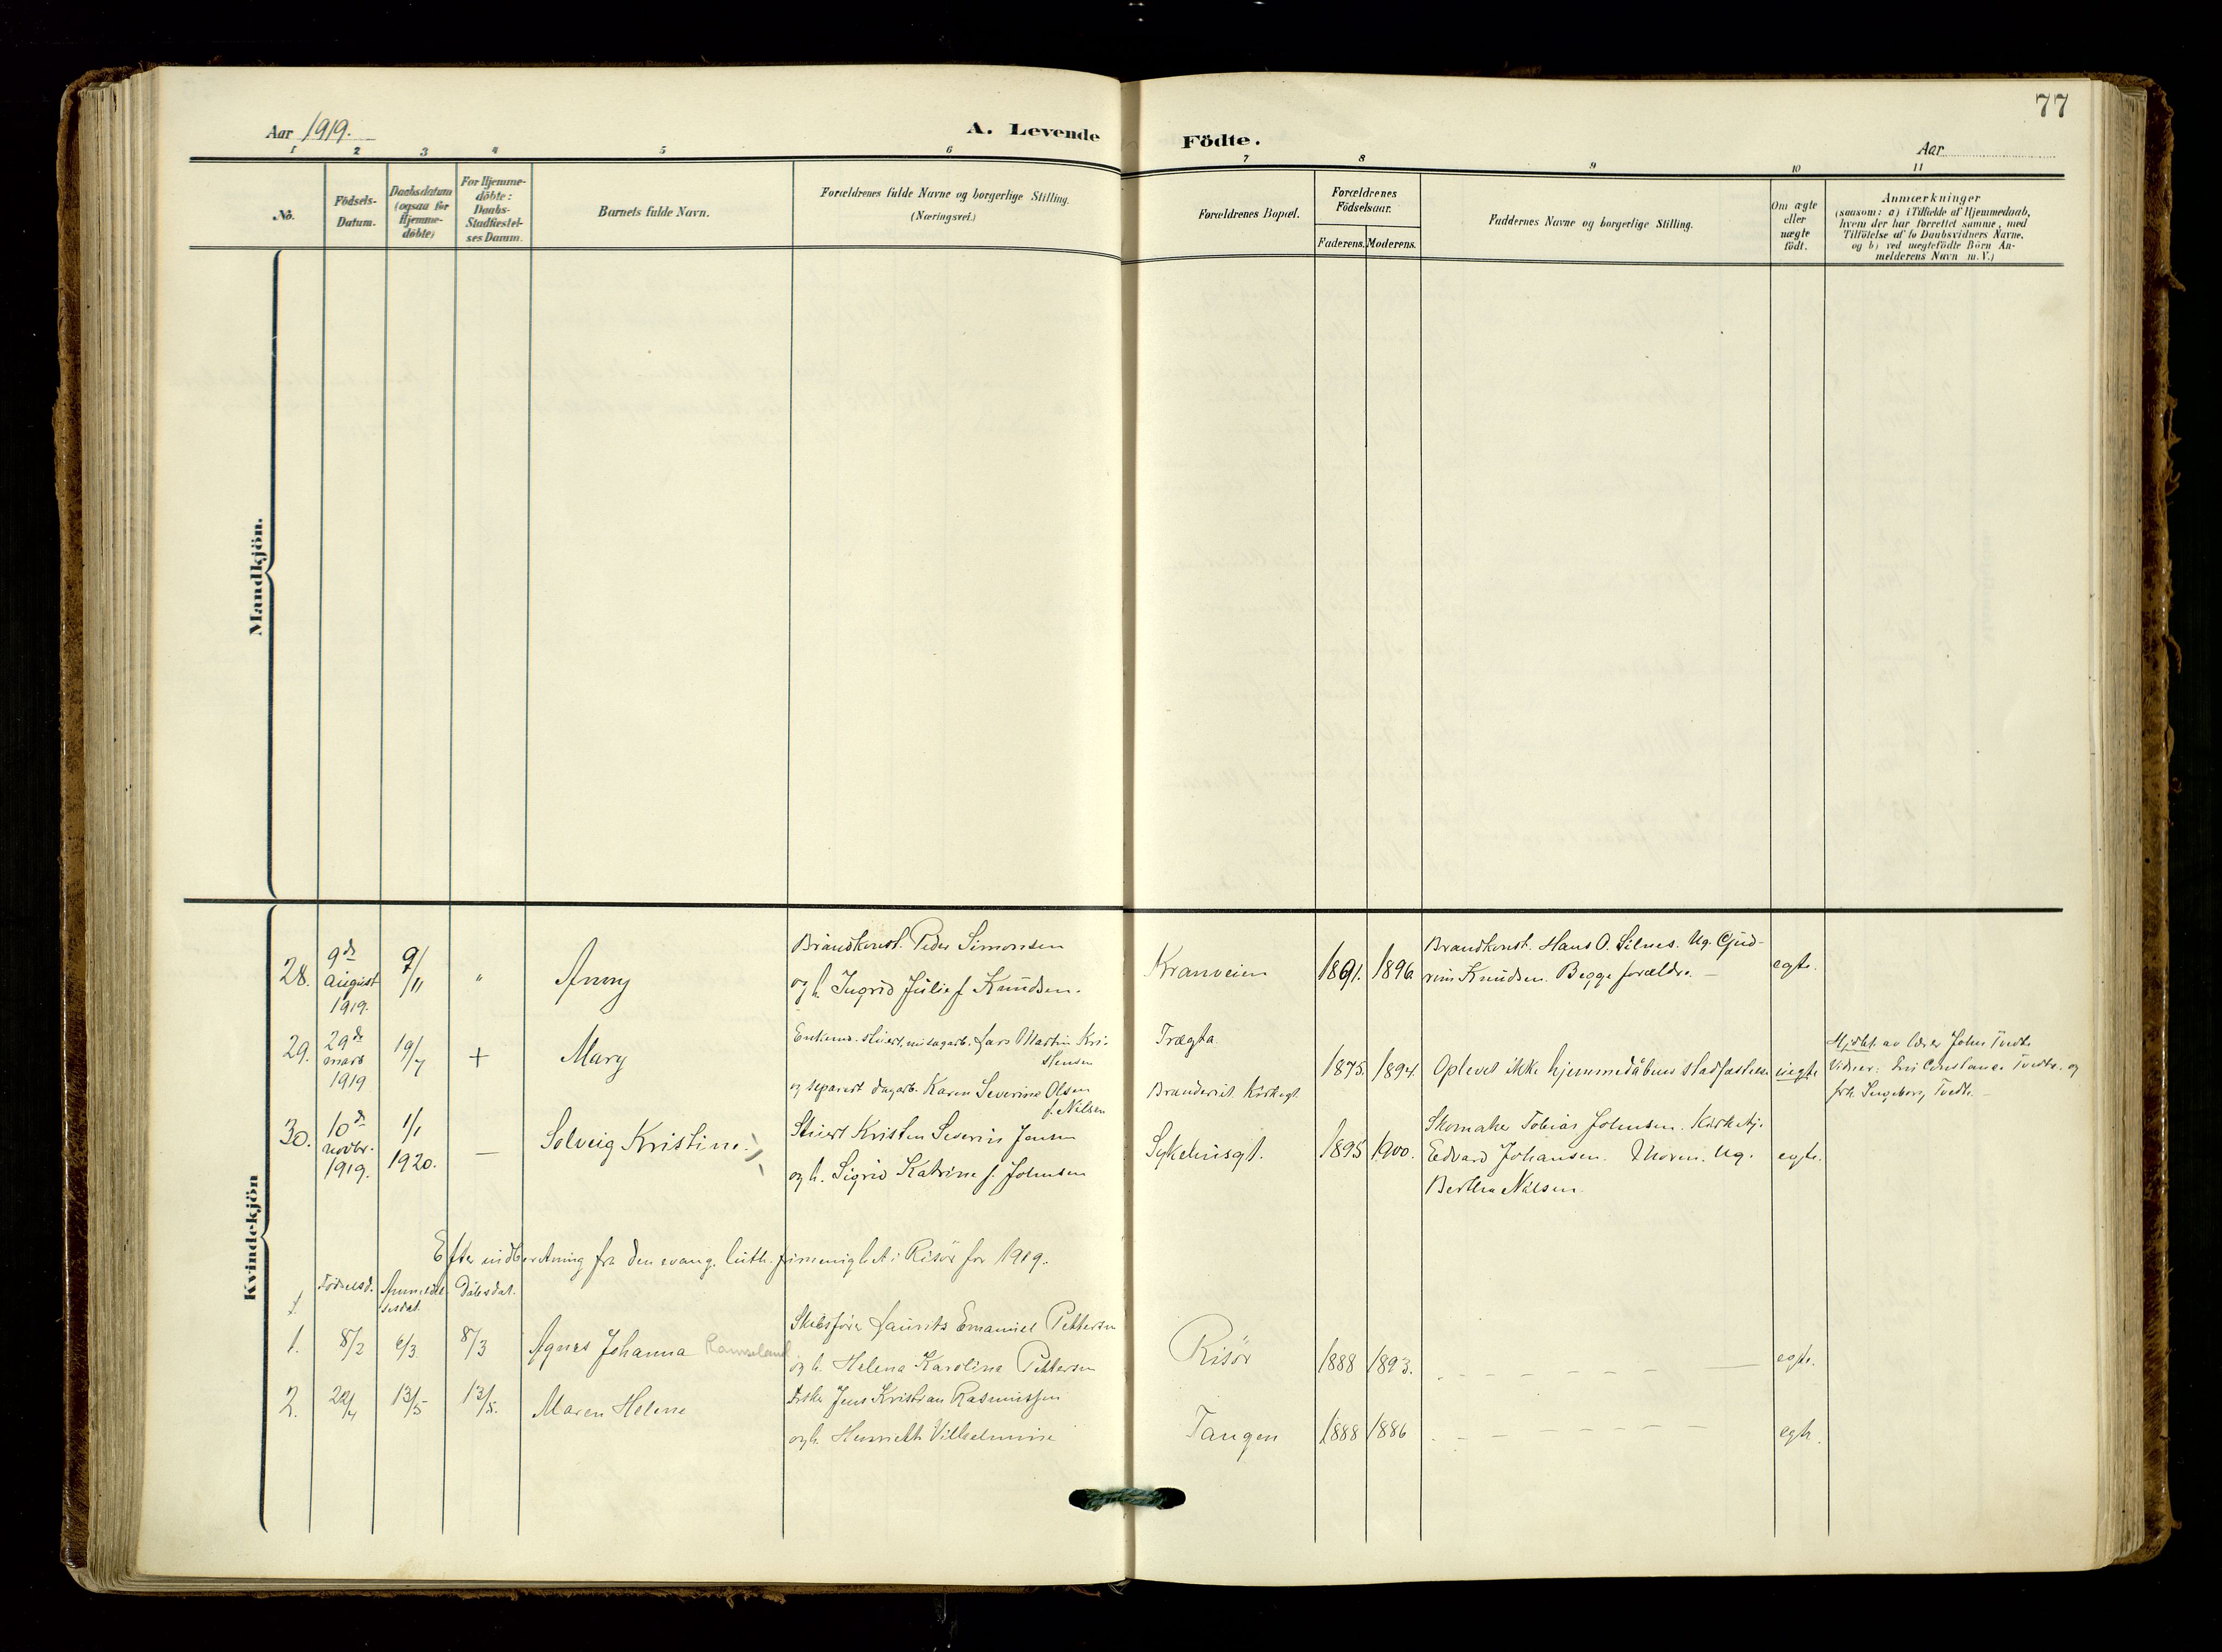 77
Aar 1919.
A. Levende Födte.
Aar
1 2 3 4 5 6 7 8 9 10 11
No.
Födsels-
Datum.
Daabsdatum
(ogsaa for
Hjemme-
döbte)
For Hjemme-
döbte:
Daabs-
Stadfæstel-
ses Datum.
Barnets fulde Navn.
Forældrenes fulde Navne og borgerlige Stilling.
(Næringsvei.)
Forældrenes Bopæl.
Forældrenes
Födselsaar.
Faderens. Moderens.
Faddernes Navne og borgerlige Stilling.
Om ægte
eller
uægte
födt.
Anmærkninger
(saasom: a) i Tilfælde af Hjemmedaab,
hvem der har forrettet samme, med
Tilföielse af to Daabsvidners Navne,
og b) ved uægtefödte Börn An-
melderens Navn m. V.)
Mandkjön.
Kvindekjön
28.
9de
august
1919.
9/11
"
Anny
Brandkonst. Peder Simonsen
og h. Ingrid Julie f. Knudsen.
Kranveien
1891. 1896
Brandkonst. Hans O. Silnes. Ug. Gud-
run Knudsen. Begge forældre. —
egte.
29.
29de
mars
1919
19/7
+
Mary
Lars Martin Kri-
stensen
og separert dagarb. Karen Severine Olsen
f. Nilsen
Trægta.
Kirkegt.
1875. 1894.
Oplevet ikke hjemmedåbens stadfæstelse
uegte
Hjdbt. av lærer John Tvedte
Vidner: Constance Tvedte og
frk. Ingeborg Tvedte —
30.
10de
novbr.
1919.
1/1
1920.
—
Solveig Kristine.
Stuert Kristen Severin Jensen
og h. Sigrid Katrine f. Johnsen
Sykehusgt.
1895 1900.
Skomaker Tobias Johnsen. Kirketj.
Edvard Johansen. Moren. Ug.
Bertha Nilsen.
egte.
Efter indberetning fra den evang. luth. frimenighet i Risör for 1919.
Födselsd. Anmeldel-
sesdat.
Dåbsdat.
1. 8/2 6/3 8/3 Agnes Johanna
Skibsförer Laurits Emanuel Pettersen
og h. Helena Karoline Pettersen
Risör
1888 1893.
egte.
2. 22/4 13/5 13/5. Maren Helene
Fisker Jens Kristian Rasmussen
og h. Henriette Vilhelmine
Tangen
1888 1886
egte.